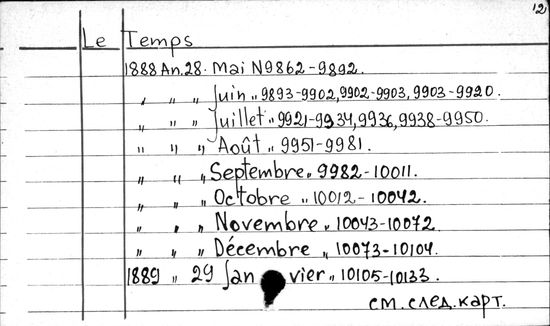 12
Le Temps
1888 An. 28. Mai N9862-9892.
" " " Juin " 9893-9902, 9902-9903, 9903-9920.
" " " Juillet " 9921-9934, 9936, 9938-9950.
" " " Août " 9951-9981.
" " " Septembre " 9982-10011.
" " " Octobre " 10012-10042.
" " " Novembre " 10043-10072.
" " " Décembre " 10073-10104.
1889 " 29 Janvier " 10105-10133.
см. след. карт.